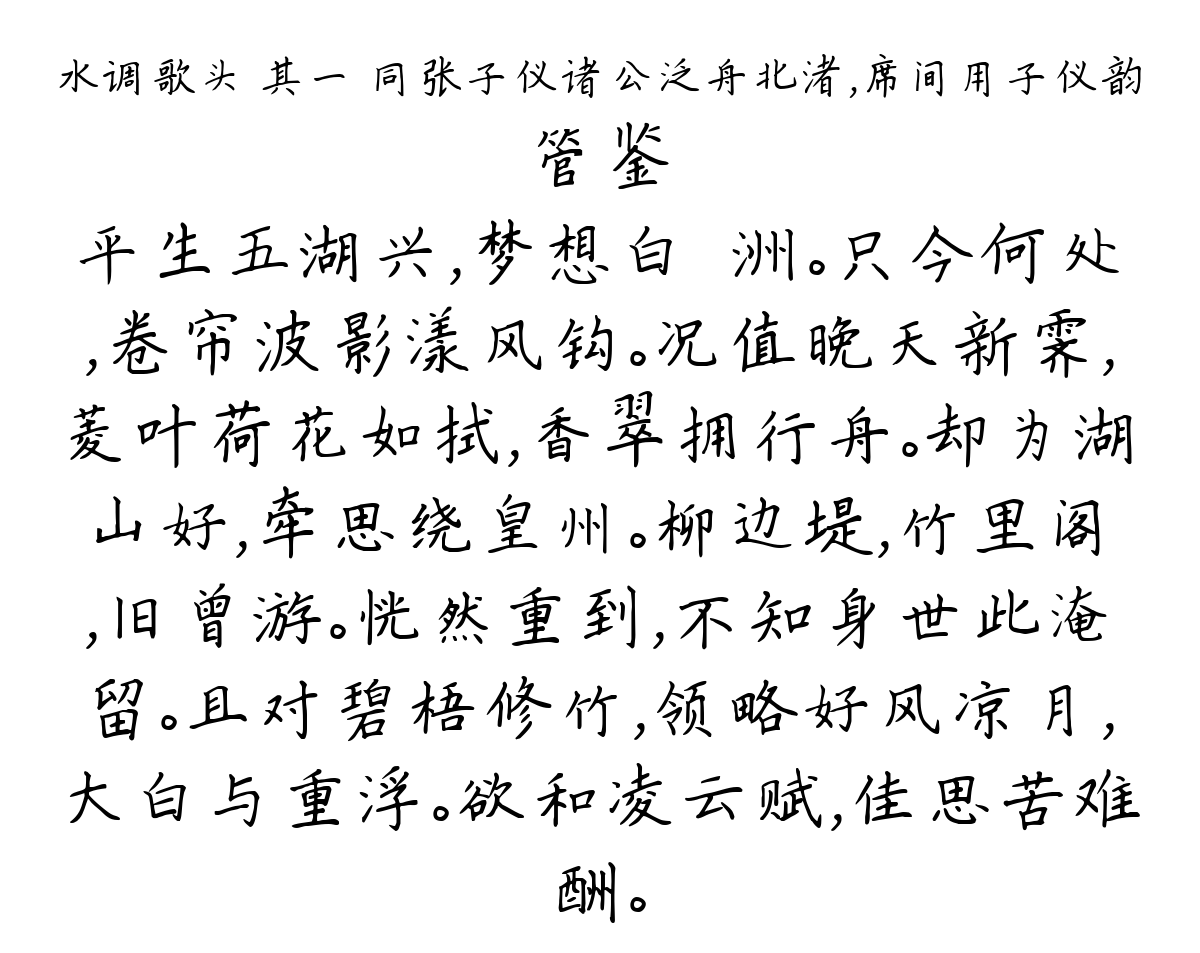 水调歌头 其一 同张子仪诸公泛舟北渚,席间用子仪韵
管鉴
平生五湖兴,梦想白 洲。只今何处
,卷帘波影漾风钩。况值晚天新霁,
菱叶荷花如拭,香翠拥行舟。却为湖
山好,牵思绕皇州。柳边堤,竹里阁
,旧曾游。恍然重到,不知身世此淹
留。且对碧梧修竹,领略好风凉月,
大白与重浮。欲和凌云赋,佳思苦难
酬。